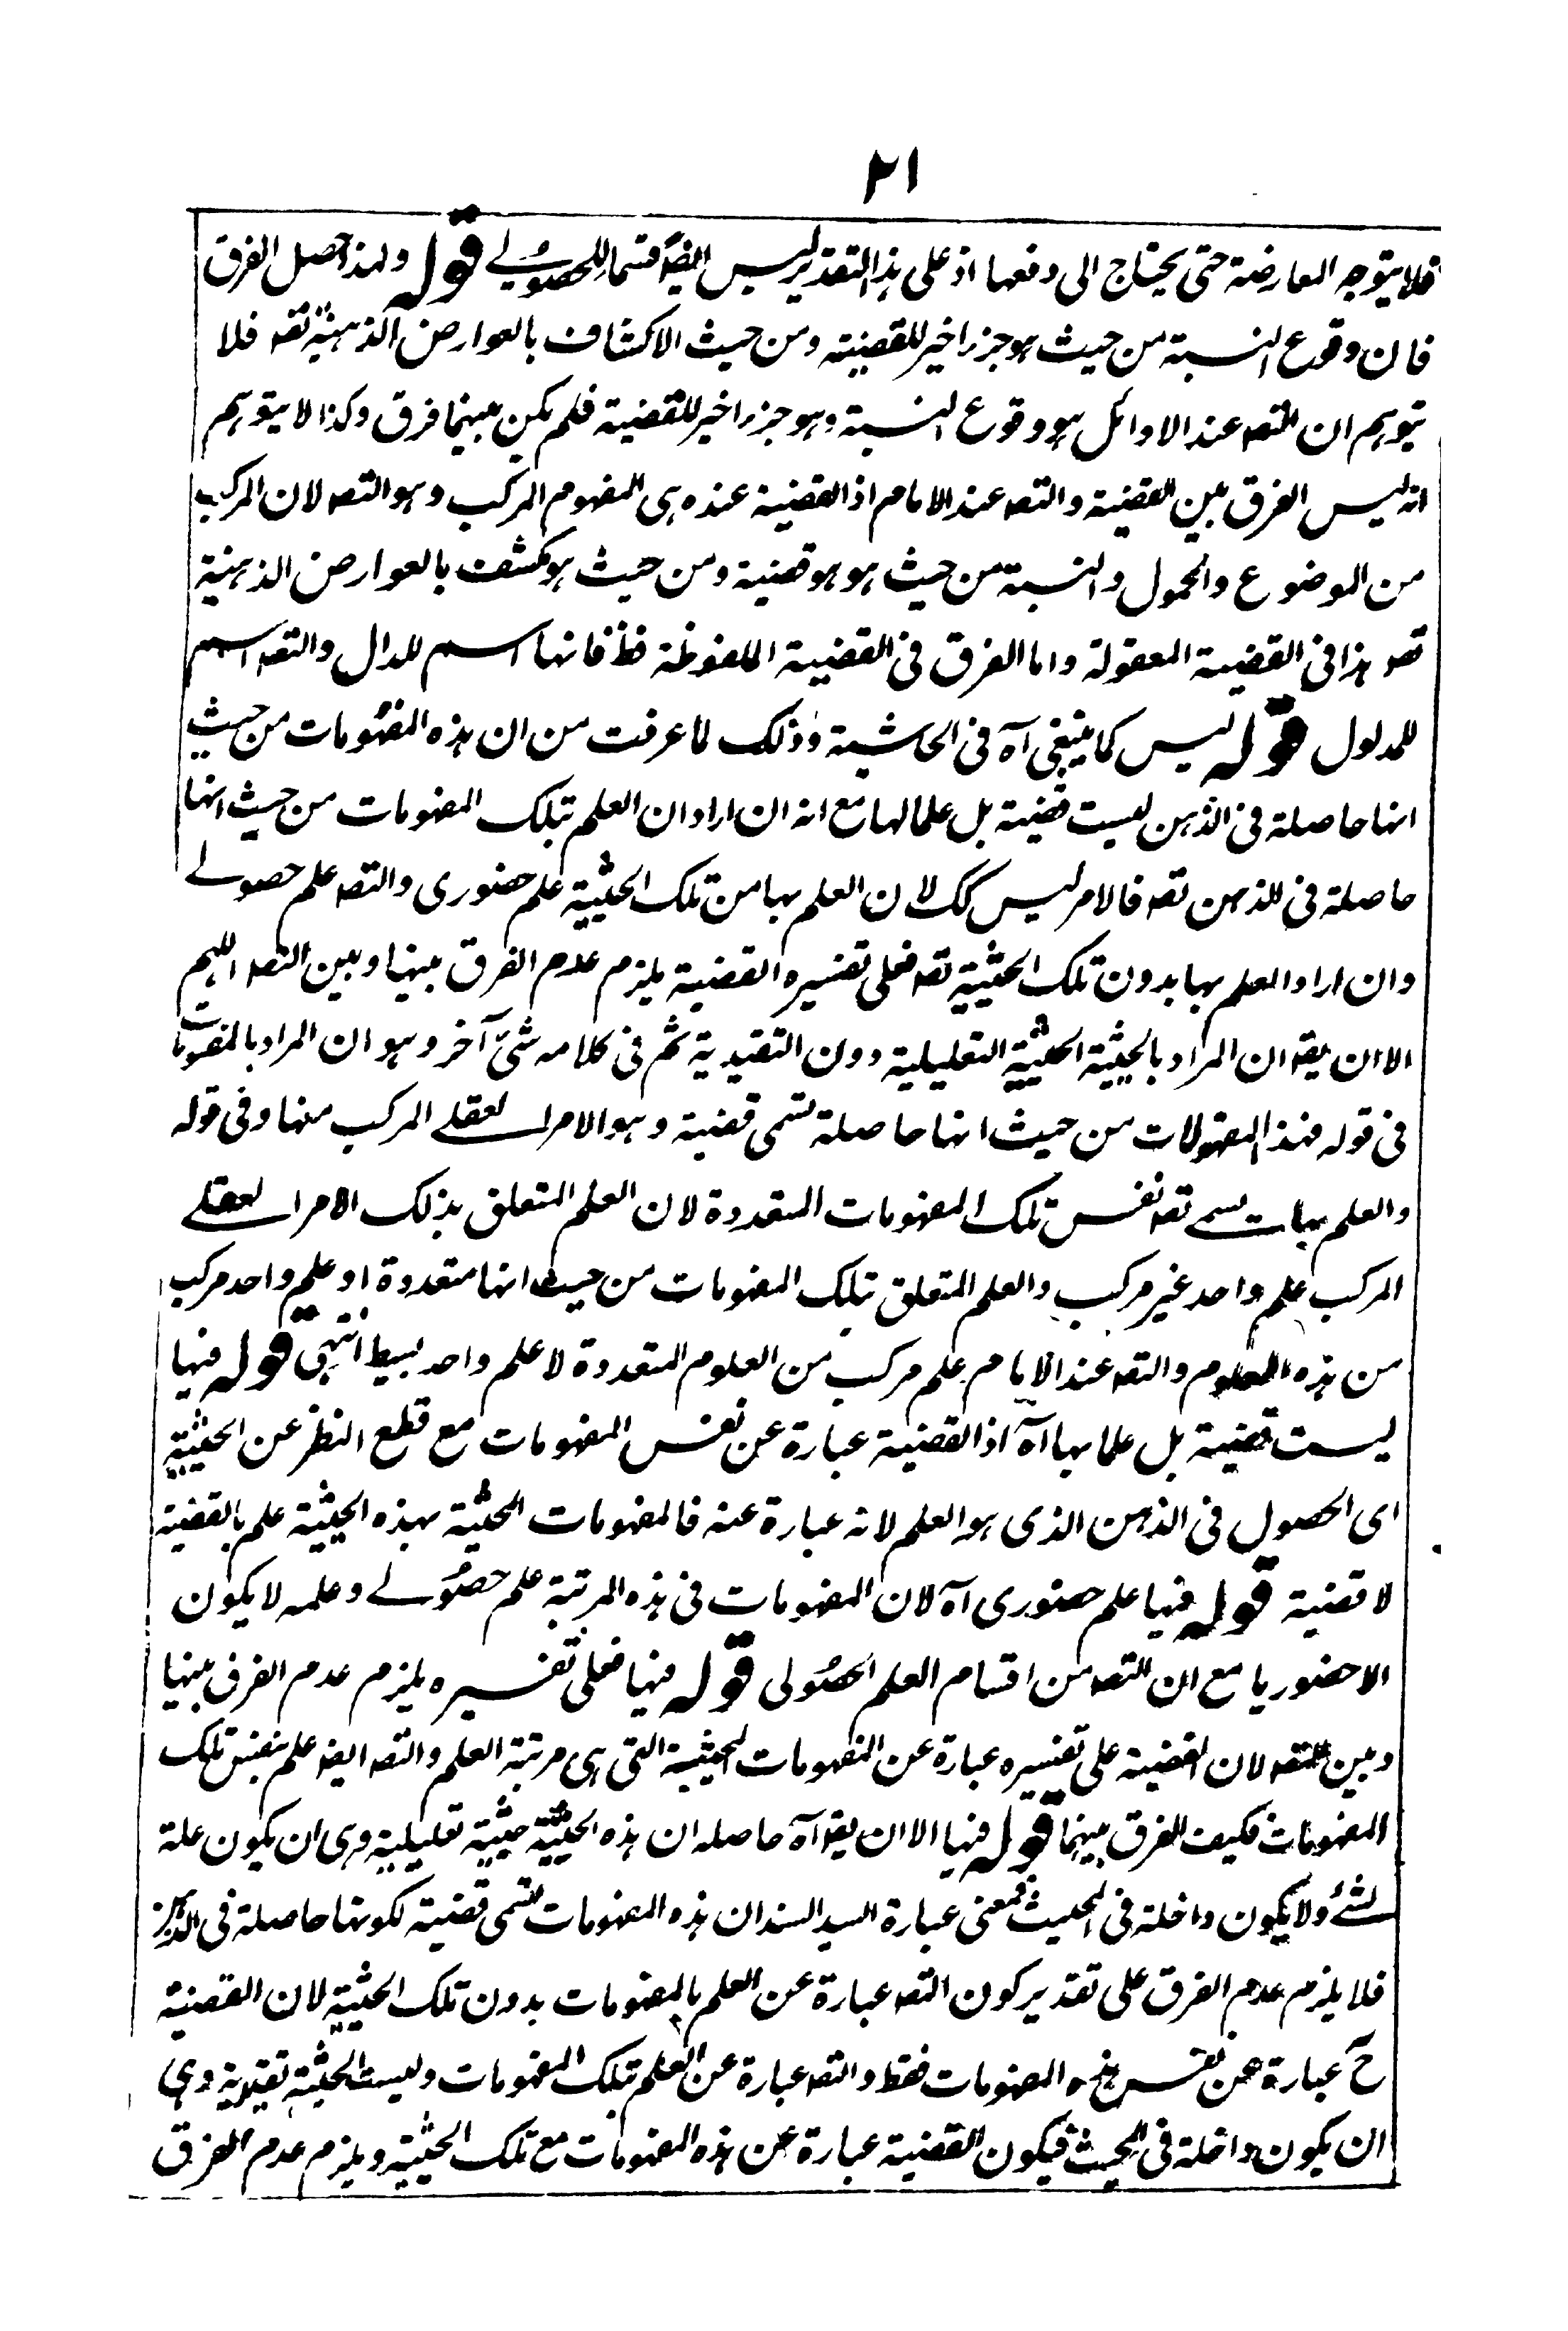 ٢١
فلا يتوجه المعارضة حتى يحتاج الى دفعها اذ على هذا التقدير ليس ايضا قسما للحصولے قوله ولهذا حصل الفرق
فان وقوع النسبة من حيث هو جزء اخير للقضية ومن حيث الاكتناف بالعوارض الذهنية تصـ فلا
يتوهم ان التصـ عند الاوائل هو وقوع النسبة وهو جزء اخير للقضية فلم يكن بينهما فرق وكذا لا يتوهم
انه ليس الفرق بين القضية والتصـ عند الامام اذ القضية عنده هى المفهوم المركب وهو التصـ لان المركب
من الموضوع والمحمول والنسبة من حيث هو هو قضية ومن حيث هو مكتنف بالعوارض الذهنية
تصـ هذا فى القضية المعقولة واما الفرق فى القضية الملفوظة فظ فانها اسم للدال والتصـ اسم
للمدلول قوله ليس كما ينبغى آه فى الحاشية وذلك لما عرفت من ان هذه المفهومات من حيث
انها حاصلة فى الذهن ليست قضية بل علما لها مع انه ان اراد ان العلم بتلك المفهومات من حيث انها
حاصلة فى الذهن تصـ فالامر ليس كك لان العلم بها من تلك الحيثية علم حضورى والتصـ علم حصولے
وان اراد العلم بها بدون تلك الحيثية تصـ فعلى تفسيره القضية يلزم عدم الفرق بينها وبين التصـ اللهم
الا ان يقـ ان المراد بالحيثية الحيثية التعليلية دون التقيدية ثم فى كلامه شئ آخر وهو ان المراد بالمفهومات
فى قوله فهذا المفهولات من حيث انها حاصلة تسمى قضية وهو الامر العقلے المركب منها وفى قوله
والعلم بها يسمے تصـ نفس تلك المفهومات المتعددة لان العلم المتعلق بذلك الامر العقلے
المركب علم واحد غير مركب والعلم المتعلق بتلك المفهومات من حيث انها متعددة او علم واحد مركب
من هذه العلوم والتصـ عند الامام علم مركب من العلوم المتعددة لا علم واحد بسيط انتهى قوله فيها
ليست قضية بل علما بها آه اذ القضية عبارة عن نفس المفهومات مع قطع النظر عن الحيثية
اى الحصول فى الذهن الذى هو العلم لانه عبارة عنه فالمفهومات المحيثة بهذه الحيثية علم بالقضية
لا قضية قوله فيها علم حضورى آه لان المفهومات فى هذه المرتبة علم حصولے وعلمه لا يكون
الا حضوريا مع ان التصـ من اقسام العلم الحصولى قوله فيها فعلى تفسيره يلزم عدم الفرق بينها
وبين التصـ لان القضية على تفسيره عبارة عن المفهومات الحيثية التى هى مرتبة العلم والتصـ ايضـ علم بنفس تلك
المفهومات فكيف الفرق بينهما قوله فيها الا ان يقـ آه حاصله ان هذه الحيثية حيثية تعليلية وهى ان يكون علة
لشئے ولا يكون داخلة فى المحيث فمعنى عبارة السيد السند ان هذه المفهومات تسمى قضية لكونها حاصلة فى الذهن
فلا يلزم عدم الفرق على تقدير كون التصـ عبارة عن العلم بالمفهومات بدون تلك الحيثية لان القضية
ح عبارة عن نفس هذه المفهومات فقط والتصـ عبارة عن العلم بتلك المفهومات وليست الحيثية تقيدية وهى
ان يكون داخلة فى المحيث فيكون القضية عبارة عن هذه المفهومات مع تلك الحيثية ويلزم عدم الفرق